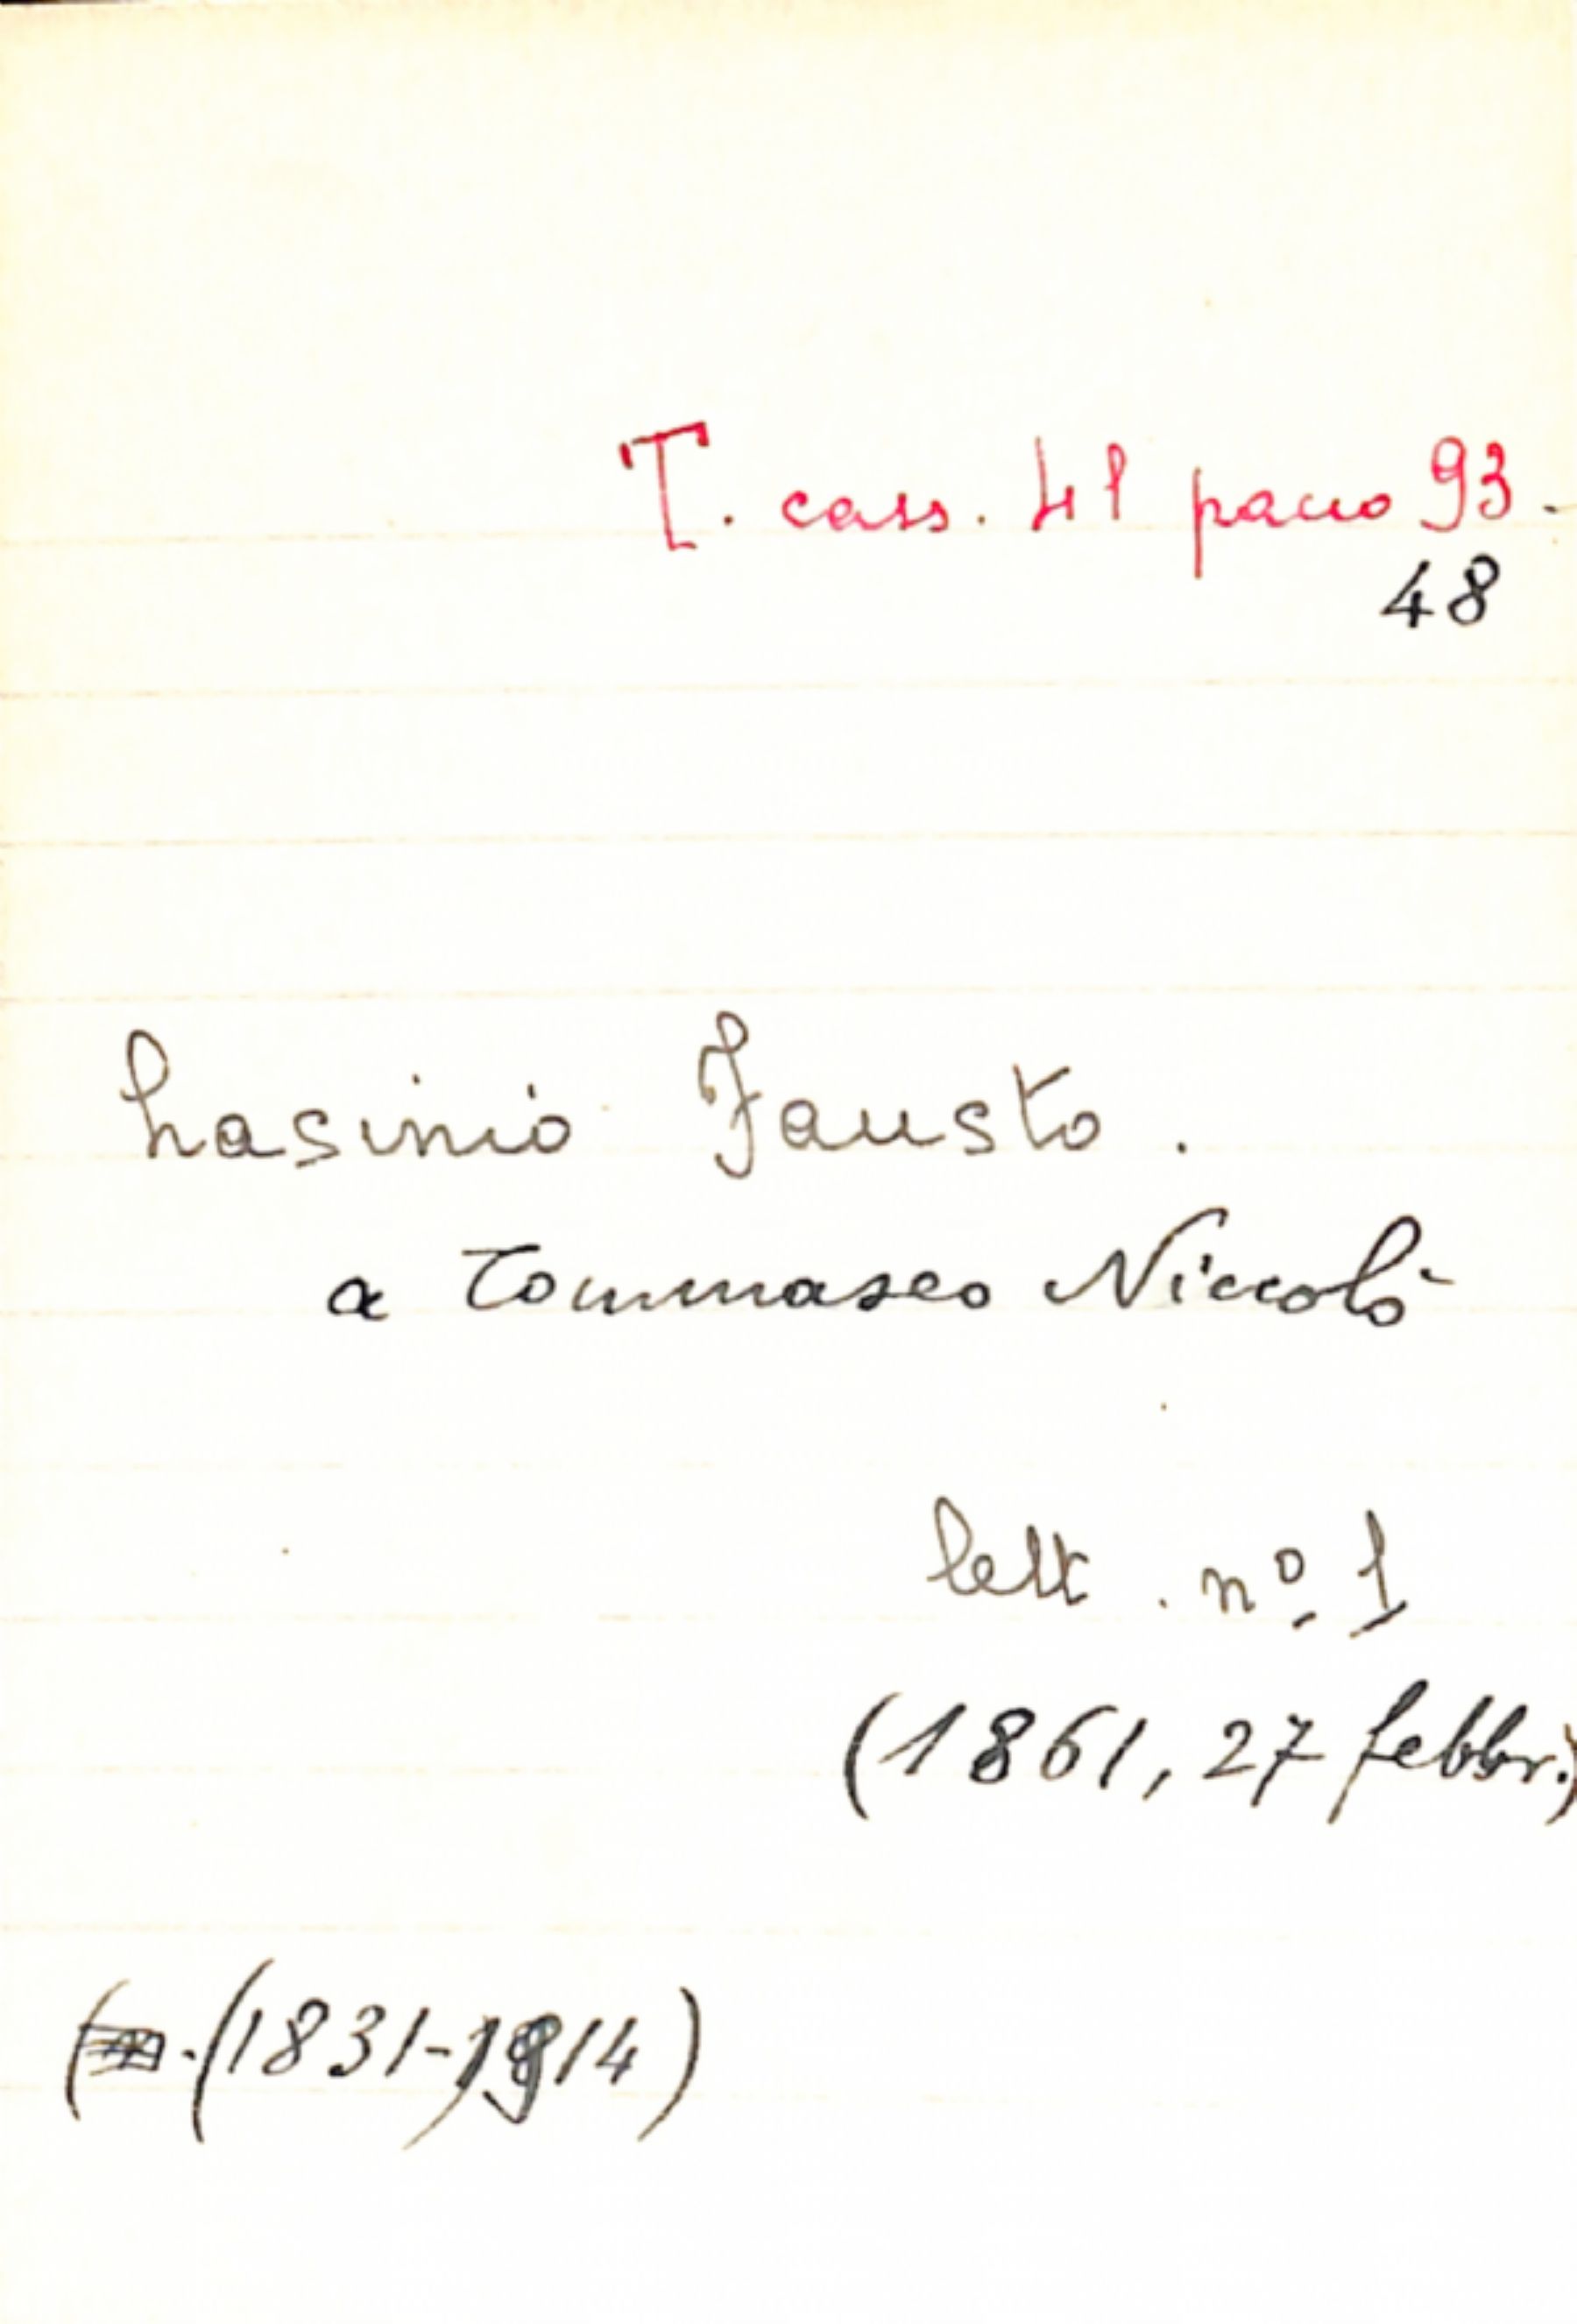 T. cass. 41 pacco 93.
48
Lasinio Fausto.
a Tommaseo Niccolò
lett. nº 1
(1861, 27 febbr.)
(1831-1914)